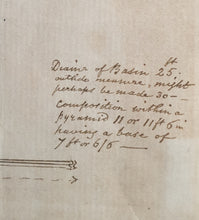 Diamr of Basin 25 ft
outside measure, might
perhaps be made 30—
composition within a
pyramid 11 or 11 ft 6 in
having a base of
7 ft or 6/6 —